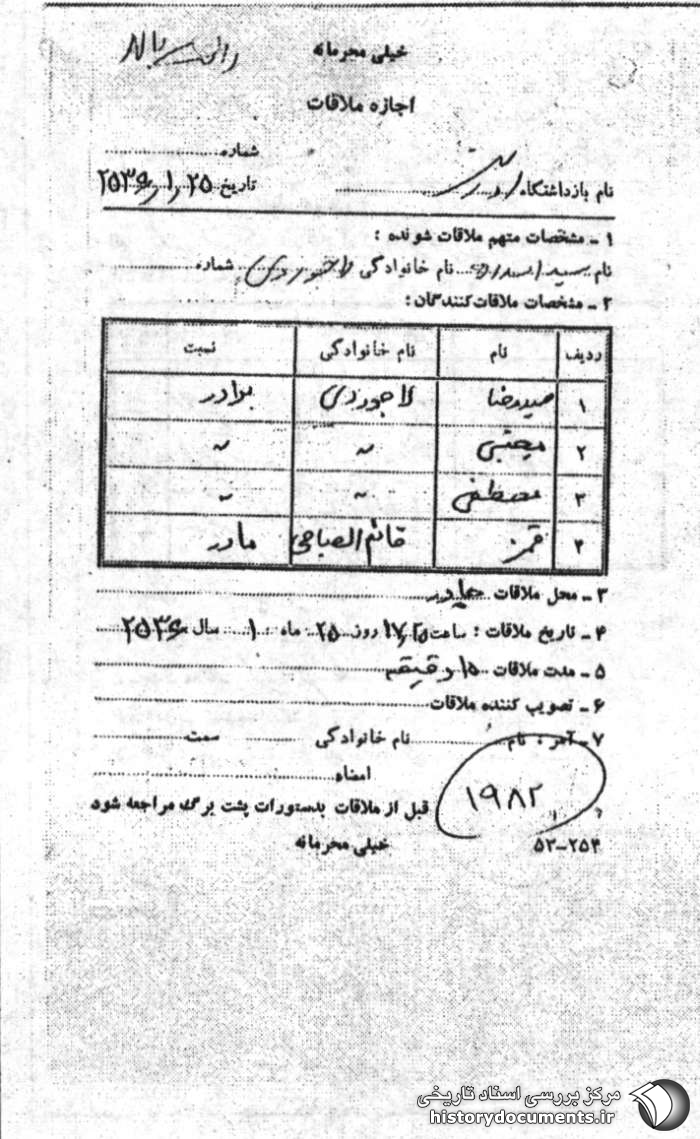 خیلی محرمانه
اجازه ملاقات
شماره
تاریخ ۲۵ ر ۱ ر ۲۵۳۶
نام بازداشتگاه اوین
۱ ـ مشخصات متهم ملاقات شونده :
نام سید اسداله نام خانوادگی لاجوردی شماره
۲ ـ مشخصات ملاقات‌کنندگان :
ردیف نام نام خانوادگی نسبت
۱ حمیدرضا لاجوردی برادر
۲ مجتبی 〃 〃
۳ مصطفی 〃 〃
۴ قمر قائم الصباحی مادر
۳ ـ محل ملاقات
۴ ـ تاریخ ملاقات : ساعت روز ۲۵ ماه ۱ سال ۲۵۳۶
۵ ـ مدت ملاقات ۱۵ دقیقه
۶ ـ تصویب کننده ملاقات
۷ ـ آمر : نام نام خانوادگی سمت
امضاء
۱۹۸۲
قبل از ملاقات بدستورات پشت برگ مراجعه شود
۵۲-۲۵۴
خیلی محرمانه
مرکز بررسی اسناد تاریخی
historydocuments.ir